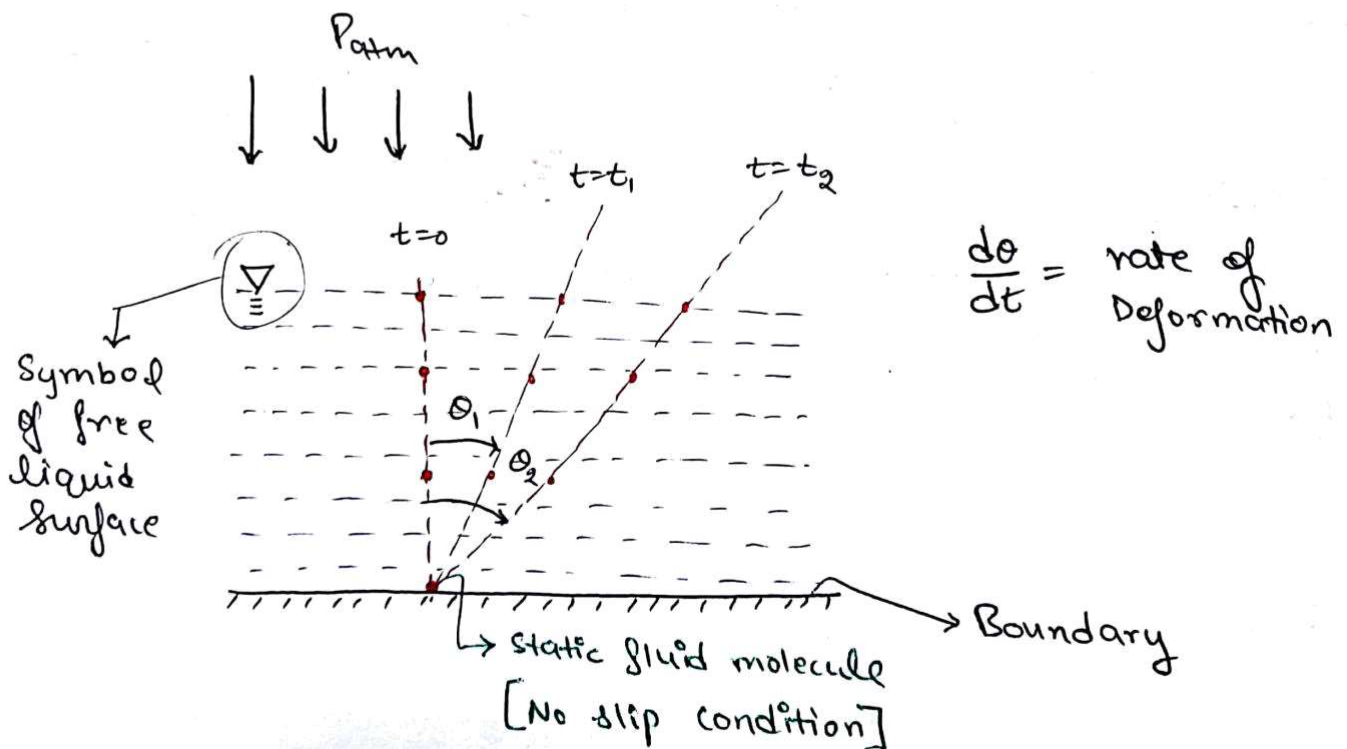 Patm
t=t₁
t=t₂
t=0
dθ/dt = rate of Deformation
Symbol
of free
liquid
surface
θ₁
θ₂
Boundary
static fluid molecule
[No slip condition]